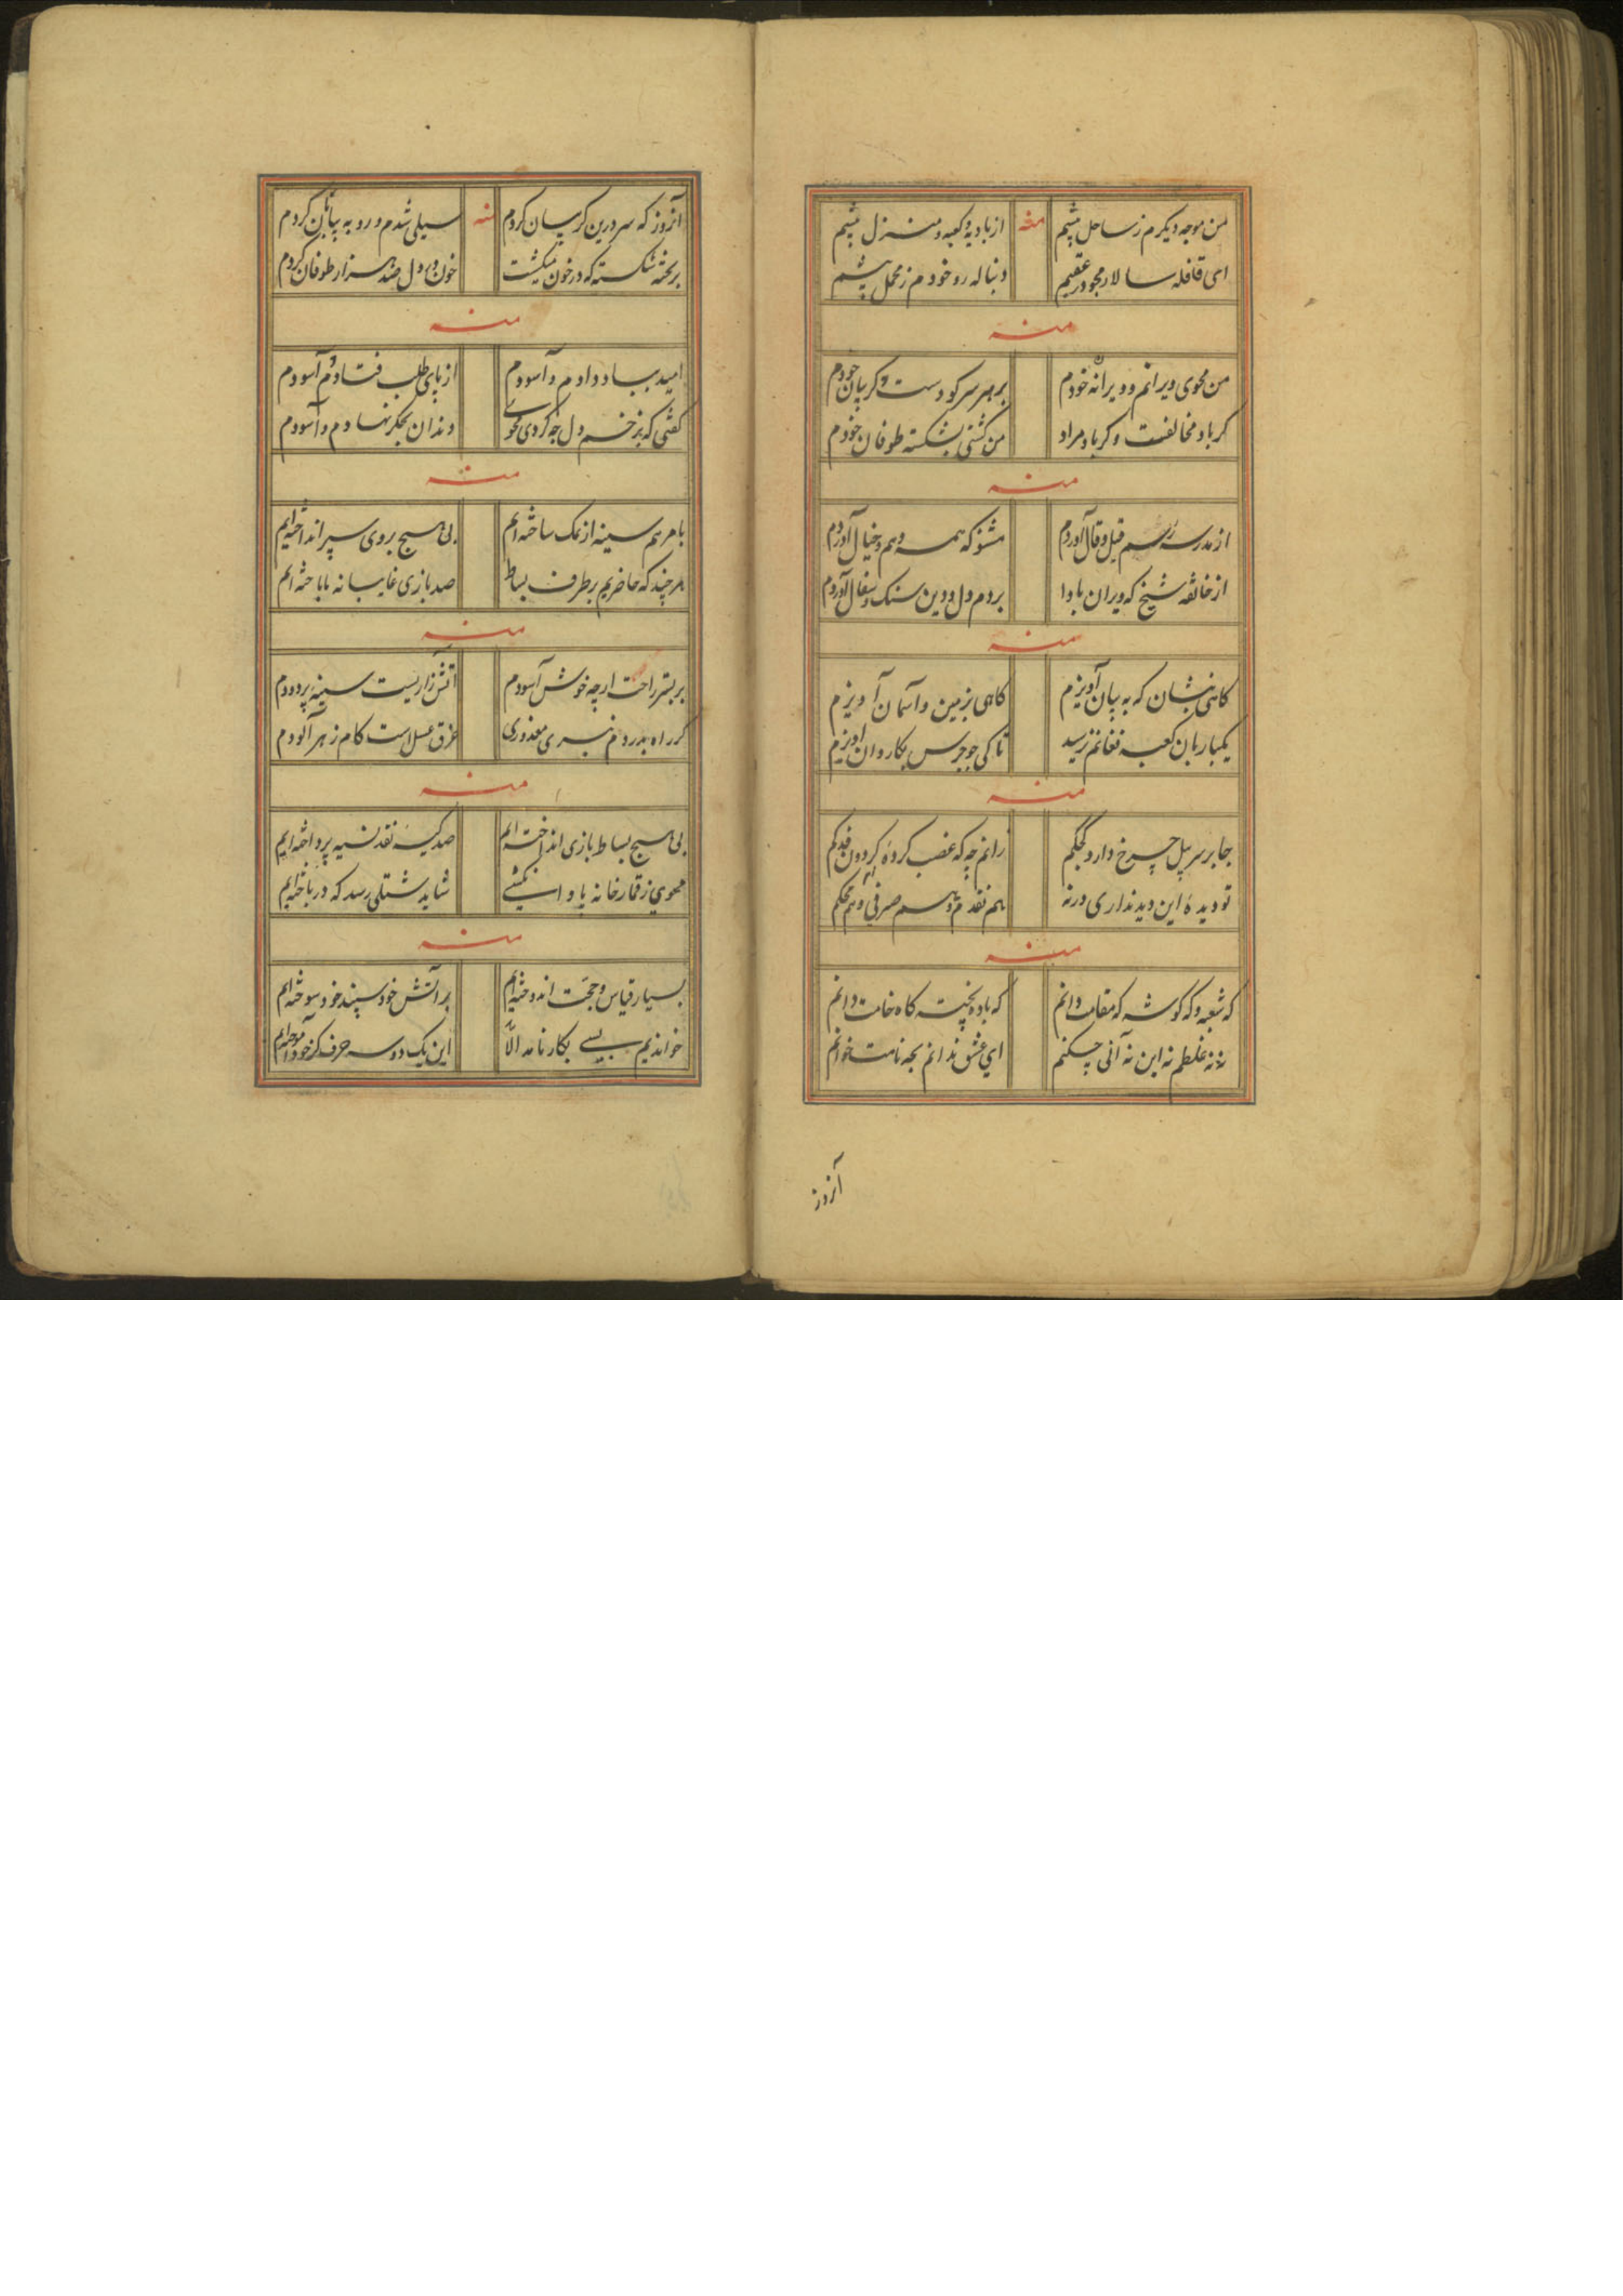 من موجه دیکرم ز ساحل پیشم منه از بادیه و کعبه و منزل پیشم
ای قافله سالار مجو در عقبم دنباله رو خودم ز محمل پیشم
منه
من محوی ویرانم و ویرانه خودم بر هر سر کو دست و کریبان خودم
کر باد مخالفست و کر باد مراد من کشتی بشکسته طوفان خودم
منه
از مدرسه رسم قیل و قال آوردم مشنو که همه وهم و خیال آوردم
از خانقه شیخ که ویران بادا بردم دل و دین سنک و سفال آوردم
منه
کاهی بشان که به بیان آویزم کاهی بزمین و آسمان آویزم
یکبار بان کعبه فغانم نرسید تا کی چو جرس بکاروان آویزم
منه
جا بر سر پل چرخ دارد کجکم رانم چه که غضب کرده کردون فدکم
تو دیده این دید نداری ورنه هم نقدم و هم صرفی و هم محکم
منه
که شعبه و که کوشه که مقامت دانم که باده پخته کاه خامت دانم
نه نه غلطم نه این نه آنی چکنم ای عشق ندانم بچه نامت خوانم
آنروز
آنروز که سر درین کریبان کردم منه سیلی شدم و رو به بیابان کردم
بر تخته شکسته که در خون میکشت خون در دل صد هزار طوفان کردم
منه
امید بباد دادم و آسودم از پای طلب فتادم و آسودم
کفتی که بزخم دل چه کردی محوی دندان بجکر نهادم و آسودم
منه
با مرهم سینه از نمک ساخته‌ایم بی هیچ بروی سپر انداخته‌ایم
هر چند که حاضریم بر طرف بساط صد بازی غایبانه با باخته‌ایم
منه
بر بستر راحت ار چه خوش آسودم آتش زاریست سینه پر دودم
کر راه بدردم نبری معذوری غرق عسل است کام زهر آلودم
منه
بی هیچ بساط بازی انداخته‌ایم صد کیسه نقد نسیه پرداخته‌ایم
محوی ز قمارخانه پا وا نکشی شاید شتلی رسد که در باخته‌ایم
منه
بسیار قیاس و حجت اندوخته‌ایم بر آتش خود سپند خود سوخته‌ایم
خواندیم بسی بکار نامد الّا این یک دو سه حرف کز خود آموخته‌ایم